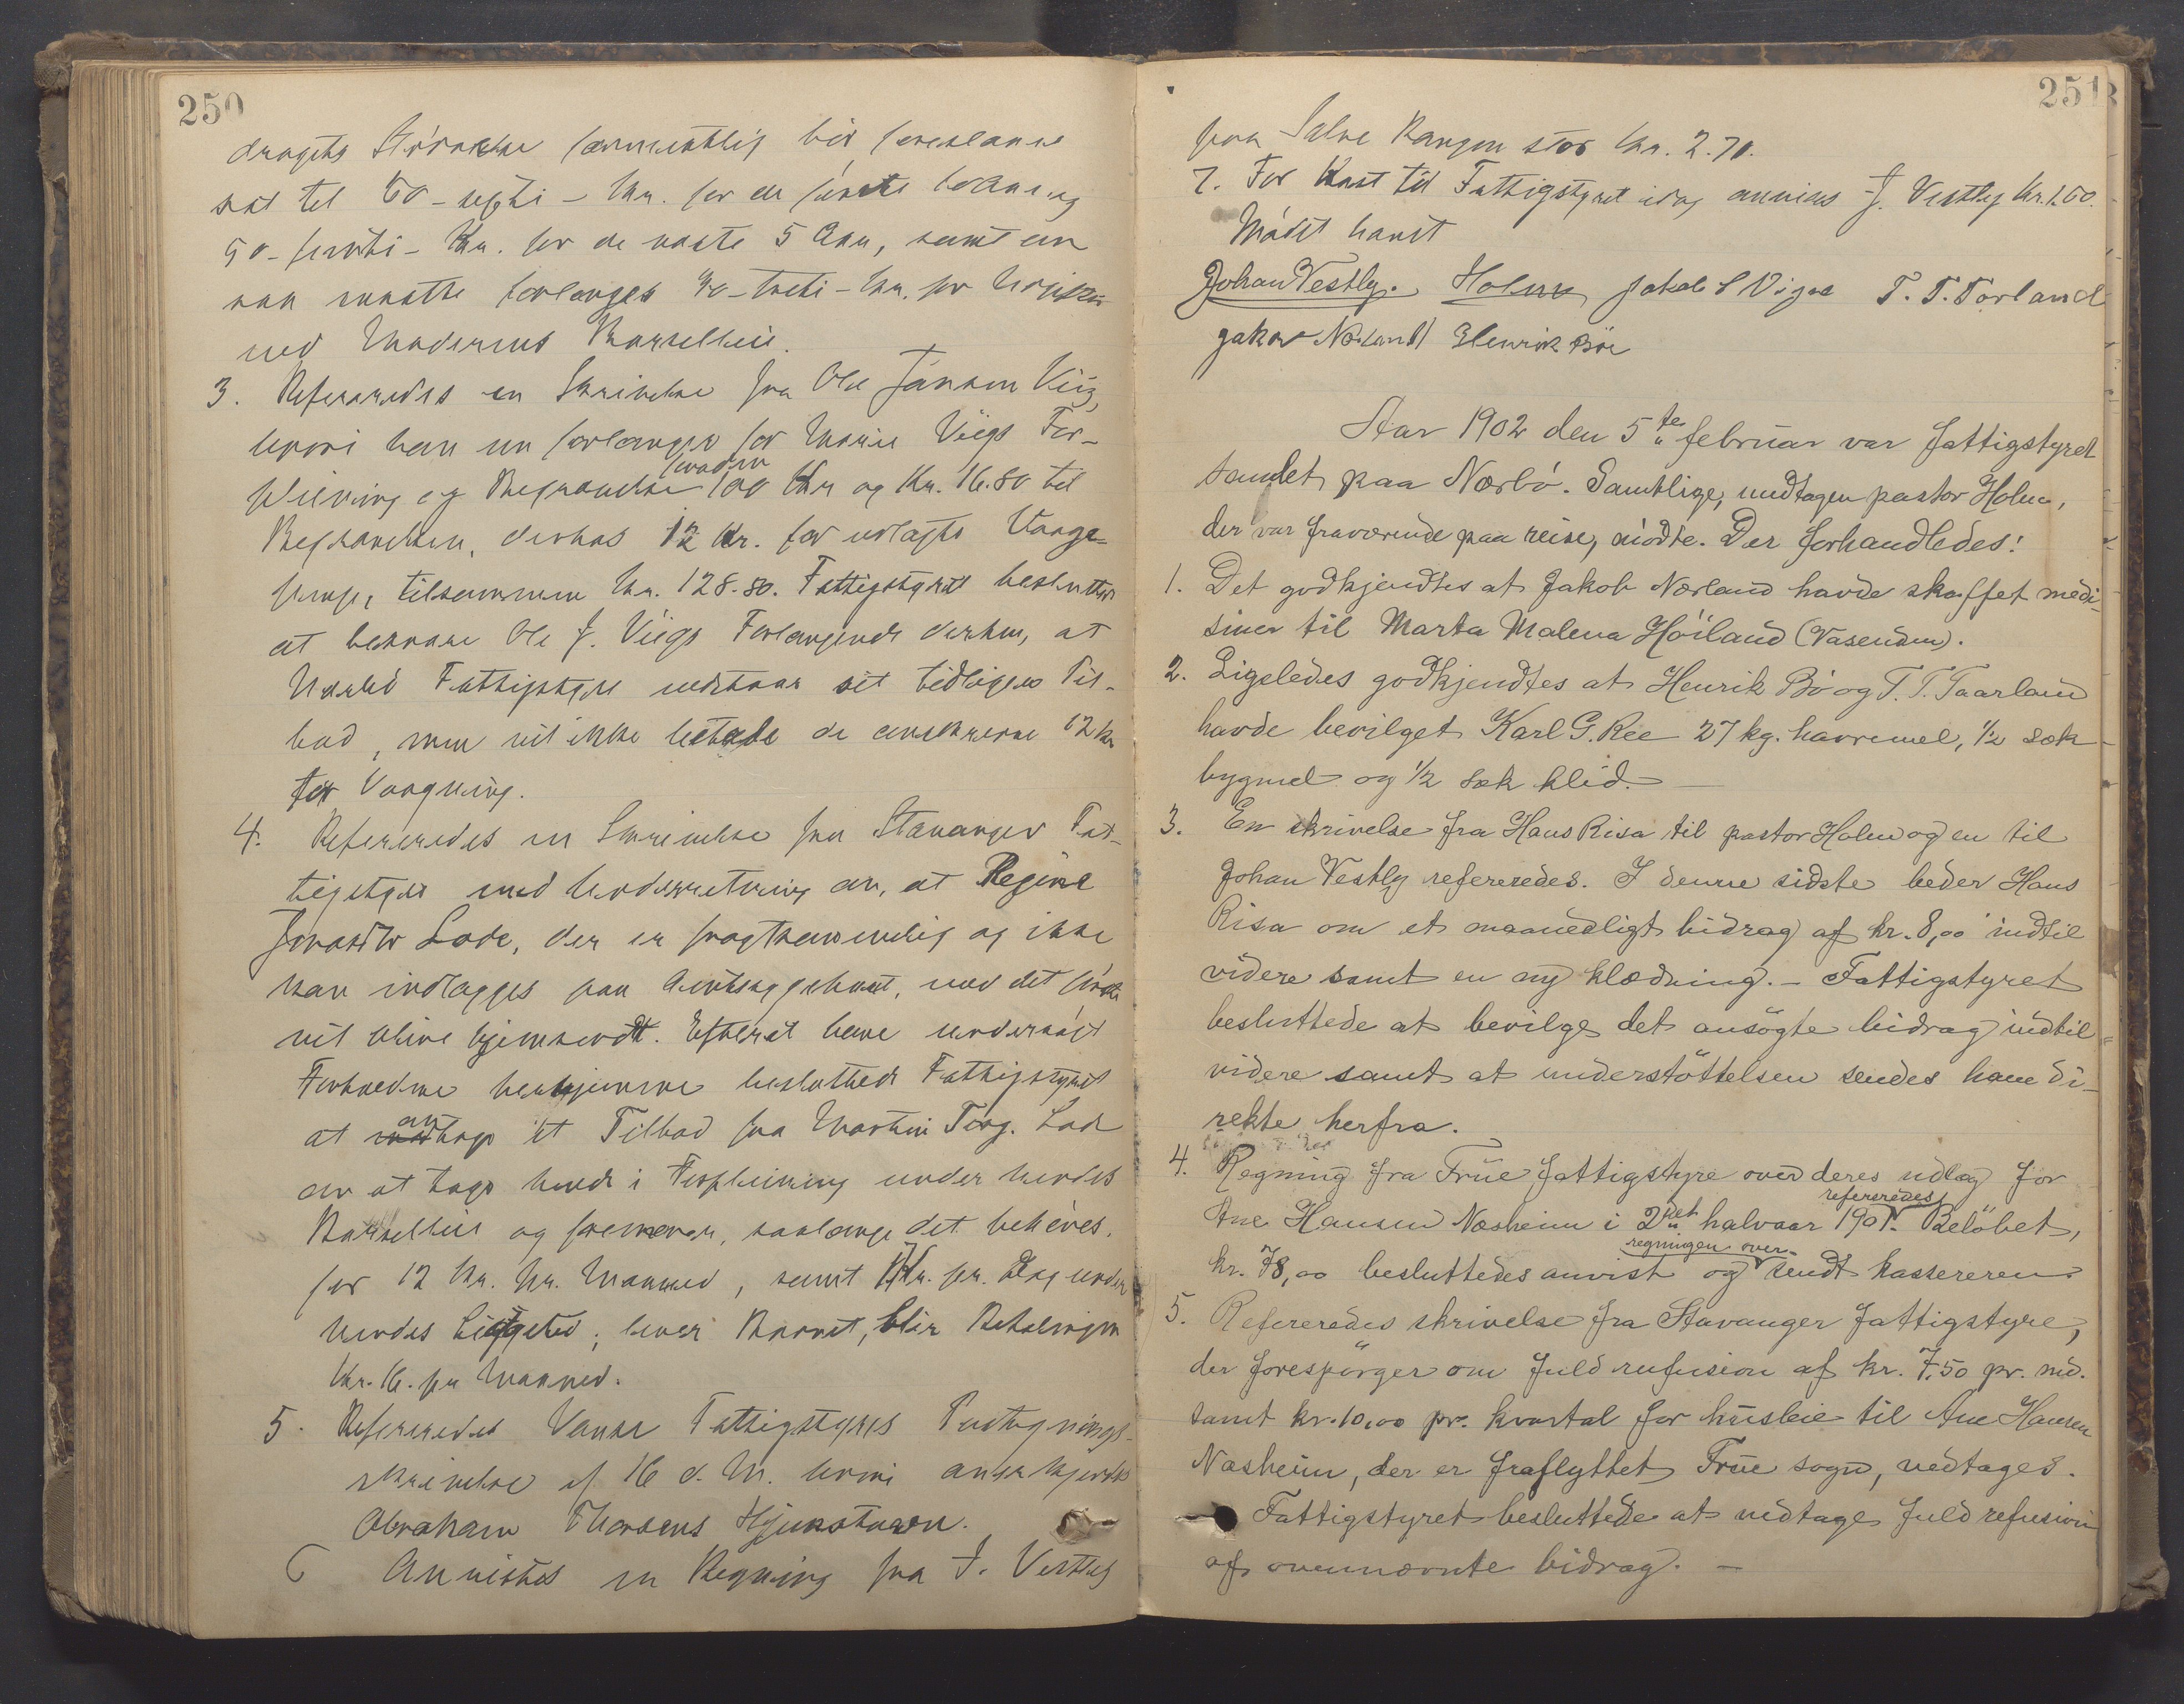 250
dragets Størrelse foreslaaes
sat til 60 - seksti - Kr. for de første 10 Aar og
50 - femti - Kr. for de næste 5 Aar, samt en
maatte forlanges 30 - treti - Kr. for Udgifter
ved Moderens Barselleie.
3. Refereredes en Skrivelse fra Ole Jansen Viig,
hvori han nu forlanger for Marie Viigs For-
pleining og Begravelse foruden 100 Kr og Kr. 16.80 til
Begravelsen, derhos 12 Kr. for udlagte Vaage-
penge, tilsammen Kr. 128.80. Fattigstyret besluttede
at besvare Ole J. Viigs Forlangende derhen, at
Fattigstyre vedstaar sit tidligere Til-
bud, men vil ikke betale de omskrevne 12 kr
for Vaagning.
4. Refereredes en Skrivelse fra Stavanger Fat-
tigstyre med Underretning om, at Regine
Lode, der er frugtsommelig og ikke
kan indlægges paa Amtssygehuset, ved det første
vil blive hjemsendt. Efter at have undersøgt
Forholdene herhjemme besluttede Fattigstyret
at antage et Tilbud fra Martin Torg. Lode
om at tage hende i Forpleining under hendes
Barselleie og fremover, saalænge det behøves,
for 12 Kr. pr. Maaned, samt 1 Kr. pr. Dag under
hendes Liggetid; lever Barnet, blir Betalingen
Kr. 16. pr Maaned.
5. Refereredes Vanse Fattigstyres Vedtagnings-
skrivelse af 16 d. M. hvori anerkjendtes
Abraham Thorsens Hjemstavn.
6 Anvistes en Regning fra J. Vestly
251
fra Salve Rangen stor Kr. 2.70.
7. For Kost til Fattigstyret idag anvises J. Vestly Kr. 1.60.
Mødet hævet
Johan Vestly. Holm Jakob S Vigre T. T. Torland
Jakob Nærland Henrik Bøe
Aar 1902 den 5te februar var fattigstyret
samlet paa Nærbö. Samtlige, undtagen pastor Holm,
der var fraværende paa reise, mödte. Der forhandledes:
1. Det godkjendtes at Jakob Nærland havde skaffet medi-
siner til Marta Malena Höiland (Vasenden).
2. Ligeledes godkjendtes at Henrik Bö og T. T. Taarland
havde bevilget Karl G. Ree 27 kg. havremel, 1/2 sæk
bygmel og 1/2 sæk klid. —
3. En skrivelse fra Hans Risa til pastor Holm og en til
Johan Vestly refereredes. I denne sidste beder Hans
Risa om et maanedligt bidrag af kr. 8,00 indtil
videre samt en ny klædning. - Fattigstyret
besluttede at bevilge det ansögte bidrag indtil
videre samt at understöttelsen sendes ham di-
rekte herfra.
4. Regning fra Frue fattigstyre over deres udlæg for
Ane Hansen Næsheim i 2det halvaar 1901 refereredes. Belöbet,
kr. 78,00 besluttedes anvist og regningen over-sendt kassereren.
5. Refereredes skrivelse fra Stavanger fattigstyre,
der forespörger om fuld refusion af kr. 7,50 pr. md.
samt kr. 10,00 pr. kvartal for husleie til Ane Hansen
Næsheim, der er fraflyttet Frue sogn, vedtages.
Fattigstyret besluttede at vedtage fuld refusion
af ovennævnte bidrag. —